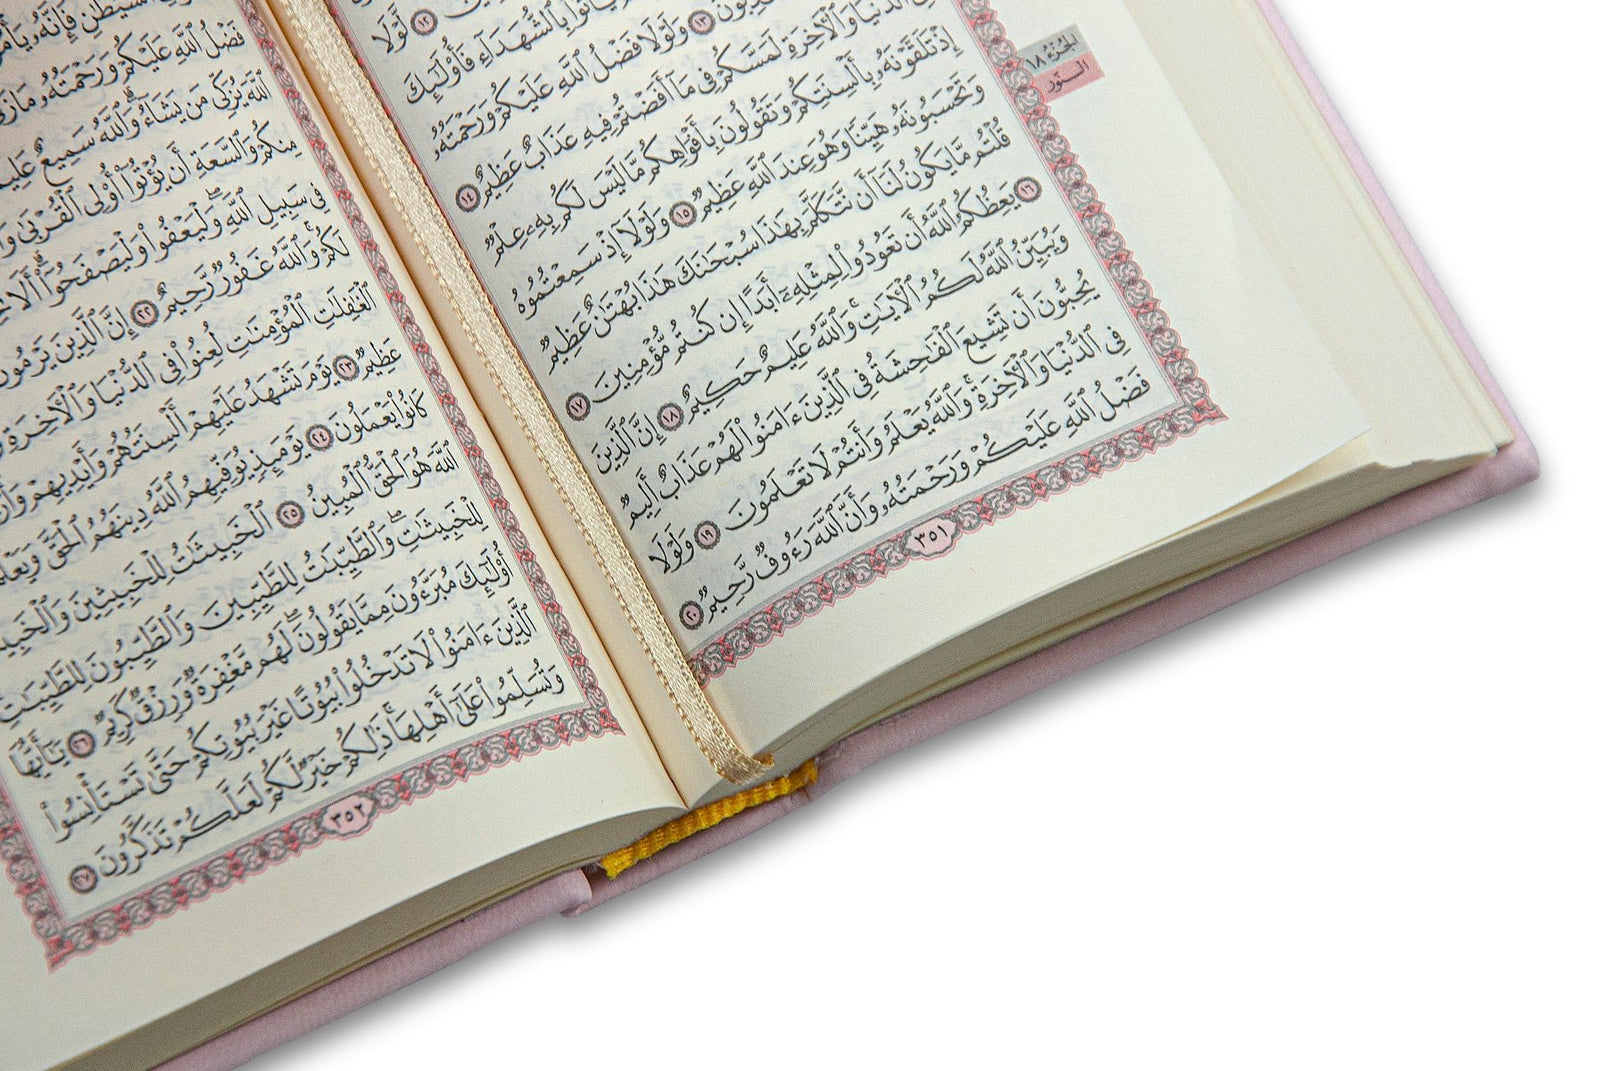 الجزء ١٨
النور
١٢ لَّوْلَا
بِالشُّهَدَاءِ فَأُولَٰئِكَ
١٣ وَلَوْلَا فَضْلُ اللَّهِ عَلَيْكُمْ وَرَحْمَتُهُ
الدُّنْيَا وَالْآخِرَةِ لَمَسَّكُمْ فِي مَا أَفَضْتُمْ فِيهِ عَذَابٌ عَظِيمٌ ١٤
إِذْ تَلَقَّوْنَهُ بِأَلْسِنَتِكُمْ وَتَقُولُونَ بِأَفْوَاهِكُم مَّا لَيْسَ لَكُم بِهِ عِلْمٌ
وَتَحْسَبُونَهُ هَيِّنًا وَهُوَ عِندَ اللَّهِ عَظِيمٌ ١٥ وَلَوْلَا إِذْ سَمِعْتُمُوهُ
قُلْتُم مَّا يَكُونُ لَنَا أَن نَّتَكَلَّمَ بِهَٰذَا سُبْحَٰنَكَ هَٰذَا بُهْتَٰنٌ عَظِيمٌ
١٦ يَعِظُكُمُ اللَّهُ أَن تَعُودُوا لِمِثْلِهِ أَبَدًا إِن كُنتُم مُّؤْمِنِينَ ١٧
وَيُبَيِّنُ اللَّهُ لَكُمُ الْآيَٰتِ وَاللَّهُ عَلِيمٌ حَكِيمٌ ١٨ إِنَّ الَّذِينَ
يُحِبُّونَ أَن تَشِيعَ الْفَٰحِشَةُ فِي الَّذِينَ ءَامَنُوا لَهُمْ عَذَابٌ أَلِيمٌ
فِي الدُّنْيَا وَالْآخِرَةِ وَاللَّهُ يَعْلَمُ وَأَنتُمْ لَا تَعْلَمُونَ ١٩ وَلَوْلَا
فَضْلُ اللَّهِ عَلَيْكُمْ وَرَحْمَتُهُ وَأَنَّ اللَّهَ رَءُوفٌ رَّحِيمٌ ٢٠
٣٥١
فَإِنَّهُ
فَضْلُ اللَّهِ عَلَيْكُمْ وَرَحْمَتُهُ مَا
اللَّهَ يُزَكِّي مَن يَشَاءُ وَاللَّهُ سَمِيعٌ
مِنكُمْ وَالسَّعَةِ أَن يُؤْتُوا أُولِي الْقُرْبَىٰ
فِي سَبِيلِ اللَّهِ وَلْيَعْفُوا وَلْيَصْفَحُوا أَلَا
لَكُمْ وَاللَّهُ غَفُورٌ رَّحِيمٌ ٢٢ إِنَّ الَّذِينَ يَرْمُونَ
الْغَٰفِلَٰتِ الْمُؤْمِنَٰتِ لُعِنُوا فِي الدُّنْيَا وَالْآخِرَةِ
عَظِيمٌ ٢٣ يَوْمَ تَشْهَدُ عَلَيْهِمْ أَلْسِنَتُهُمْ وَأَيْدِيهِمْ
كَانُوا يَعْمَلُونَ ٢٤ يَوْمَئِذٍ يُوَفِّيهِمُ اللَّهُ دِينَهُمُ الْحَقَّ
اللَّهَ هُوَ الْحَقُّ الْمُبِينُ ٢٥ الْخَبِيثَٰتُ لِلْخَبِيثِينَ
لِلْخَبِيثَٰتِ وَالطَّيِّبَٰتُ لِلطَّيِّبِينَ وَالطَّيِّبُونَ لِلطَّيِّبَٰتِ
أُولَٰئِكَ مُبَرَّءُونَ مِمَّا يَقُولُونَ لَهُم مَّغْفِرَةٌ وَرِزْقٌ كَرِيمٌ ٢٦ يَٰأَيُّهَا
الَّذِينَ ءَامَنُوا لَا تَدْخُلُوا بُيُوتًا غَيْرَ بُيُوتِكُمْ حَتَّىٰ تَسْتَأْنِسُوا
وَتُسَلِّمُوا عَلَىٰ أَهْلِهَا ذَٰلِكُمْ خَيْرٌ لَّكُمْ لَعَلَّكُمْ تَذَكَّرُونَ ٢٧
٣٥٢